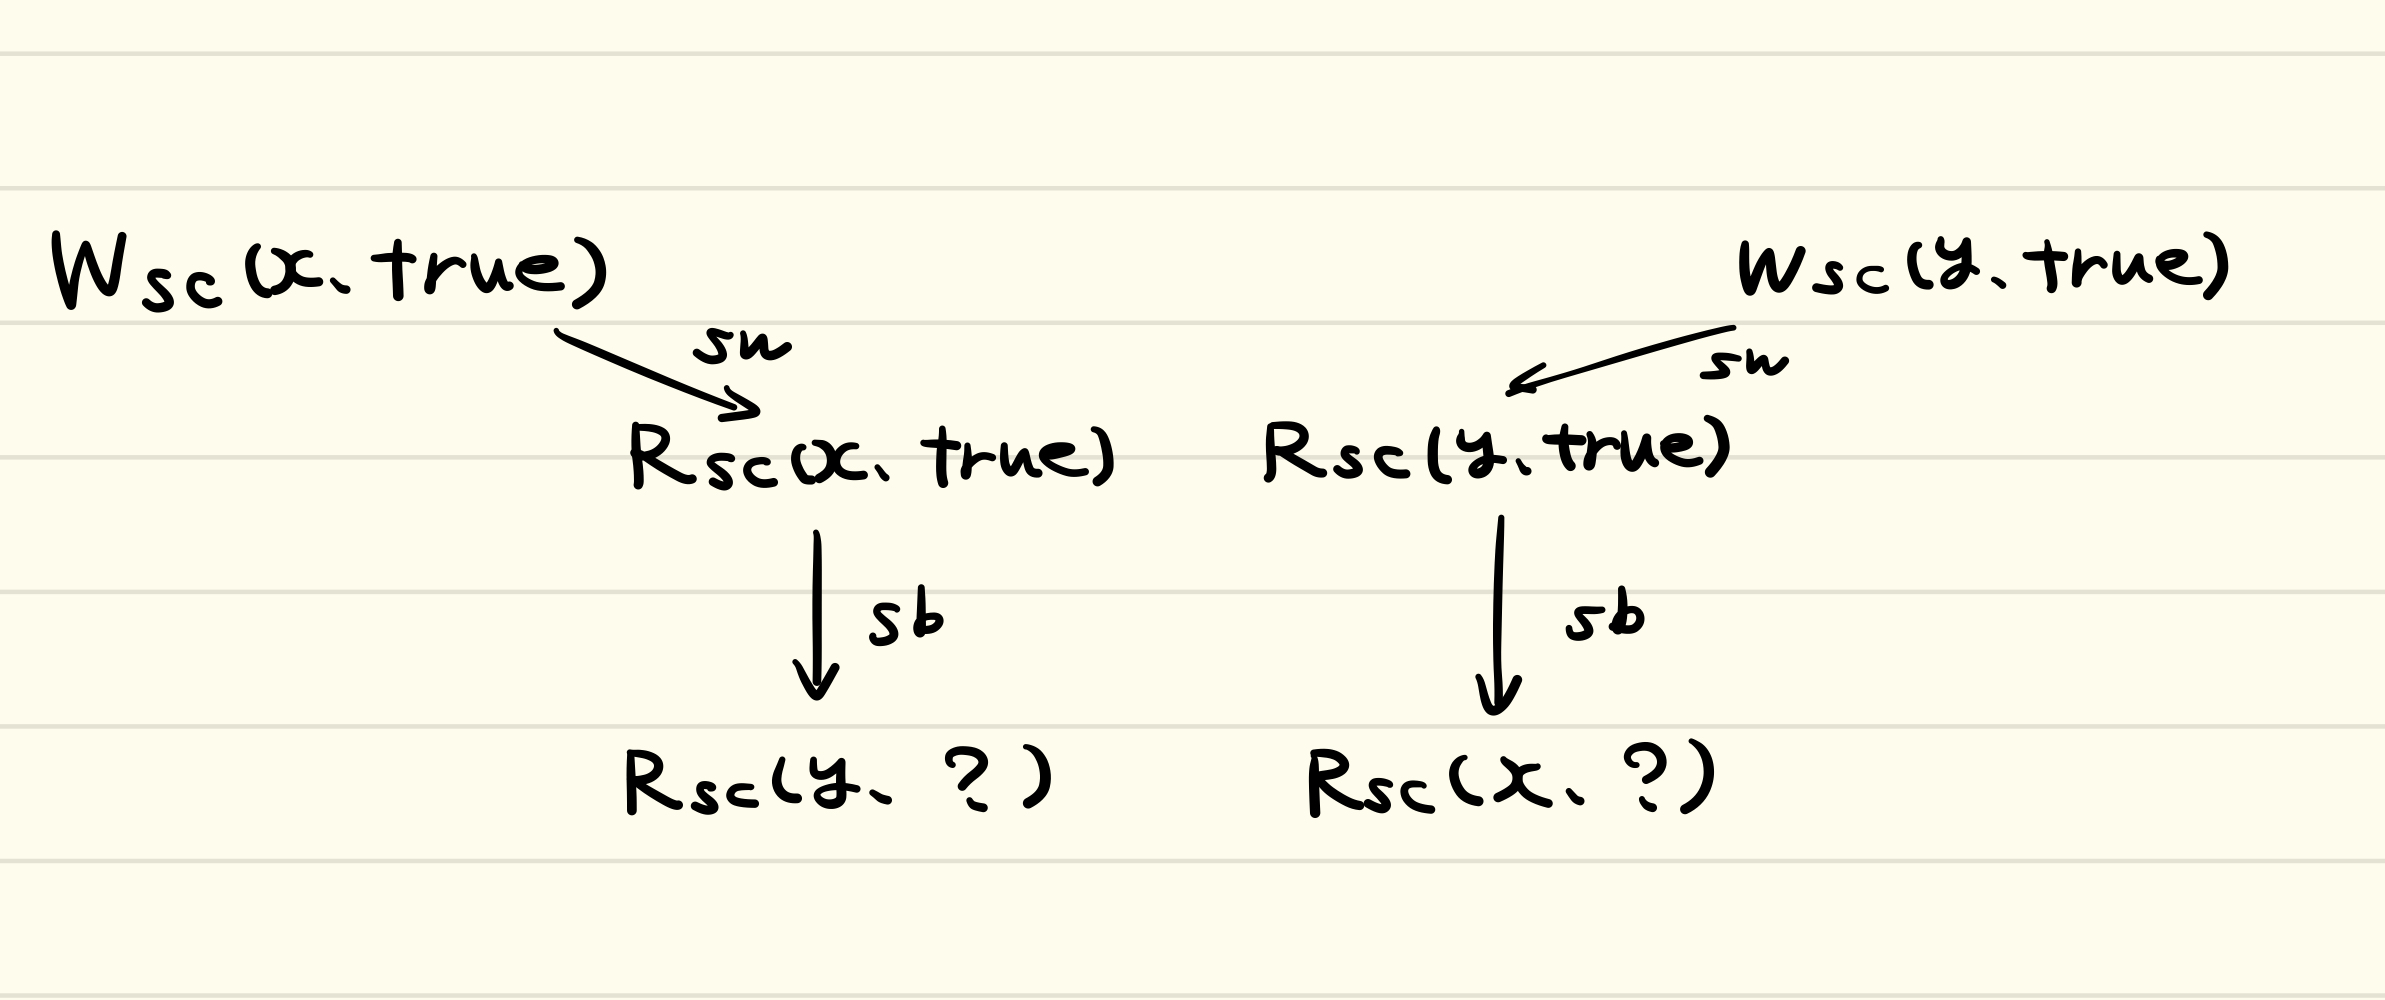 Wsc(x、true) Wsc(y、true)
sw sw
Rsc(x、true) Rsc(y、true)
sb sb
Rsc(y、?) Rsc(x、?)